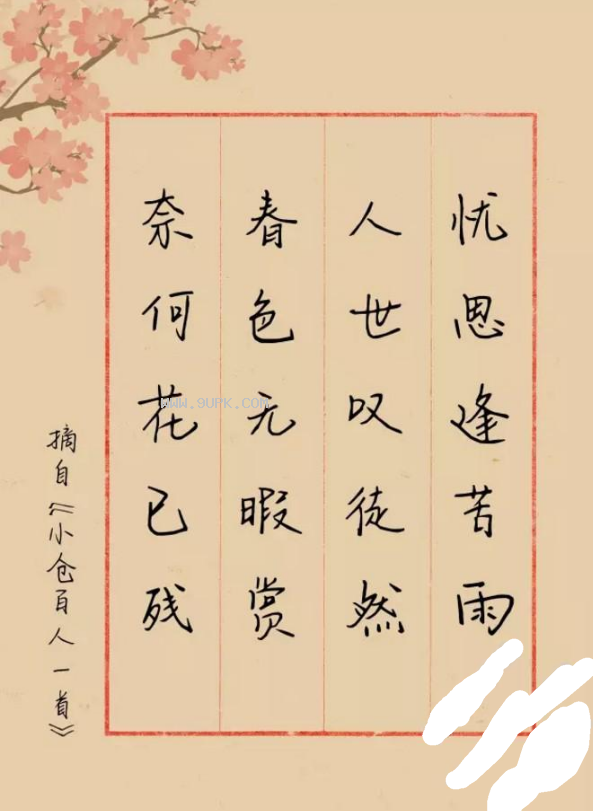 忧思逢苦雨
人世叹徒然
春色无暇赏
奈何花已残
摘自《小仓百人一首》
WWW.9UPK.COM